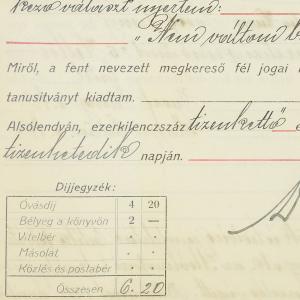 kező választ nyertem:
„Nem váltom b
Miről, a fent nevezett megkereső fél jogai
tanusitványt kiadtam.
Alsólendván, ezerkilenczszáz tizenkettő
tizenhetedik napján.
Díjjegyzék:
Óvásdíj 4 20
Bélyeg a könyvön 2 —
Vitelbér . .
Másolat . .
Közlés és postabér . .
Összesen 6. 20